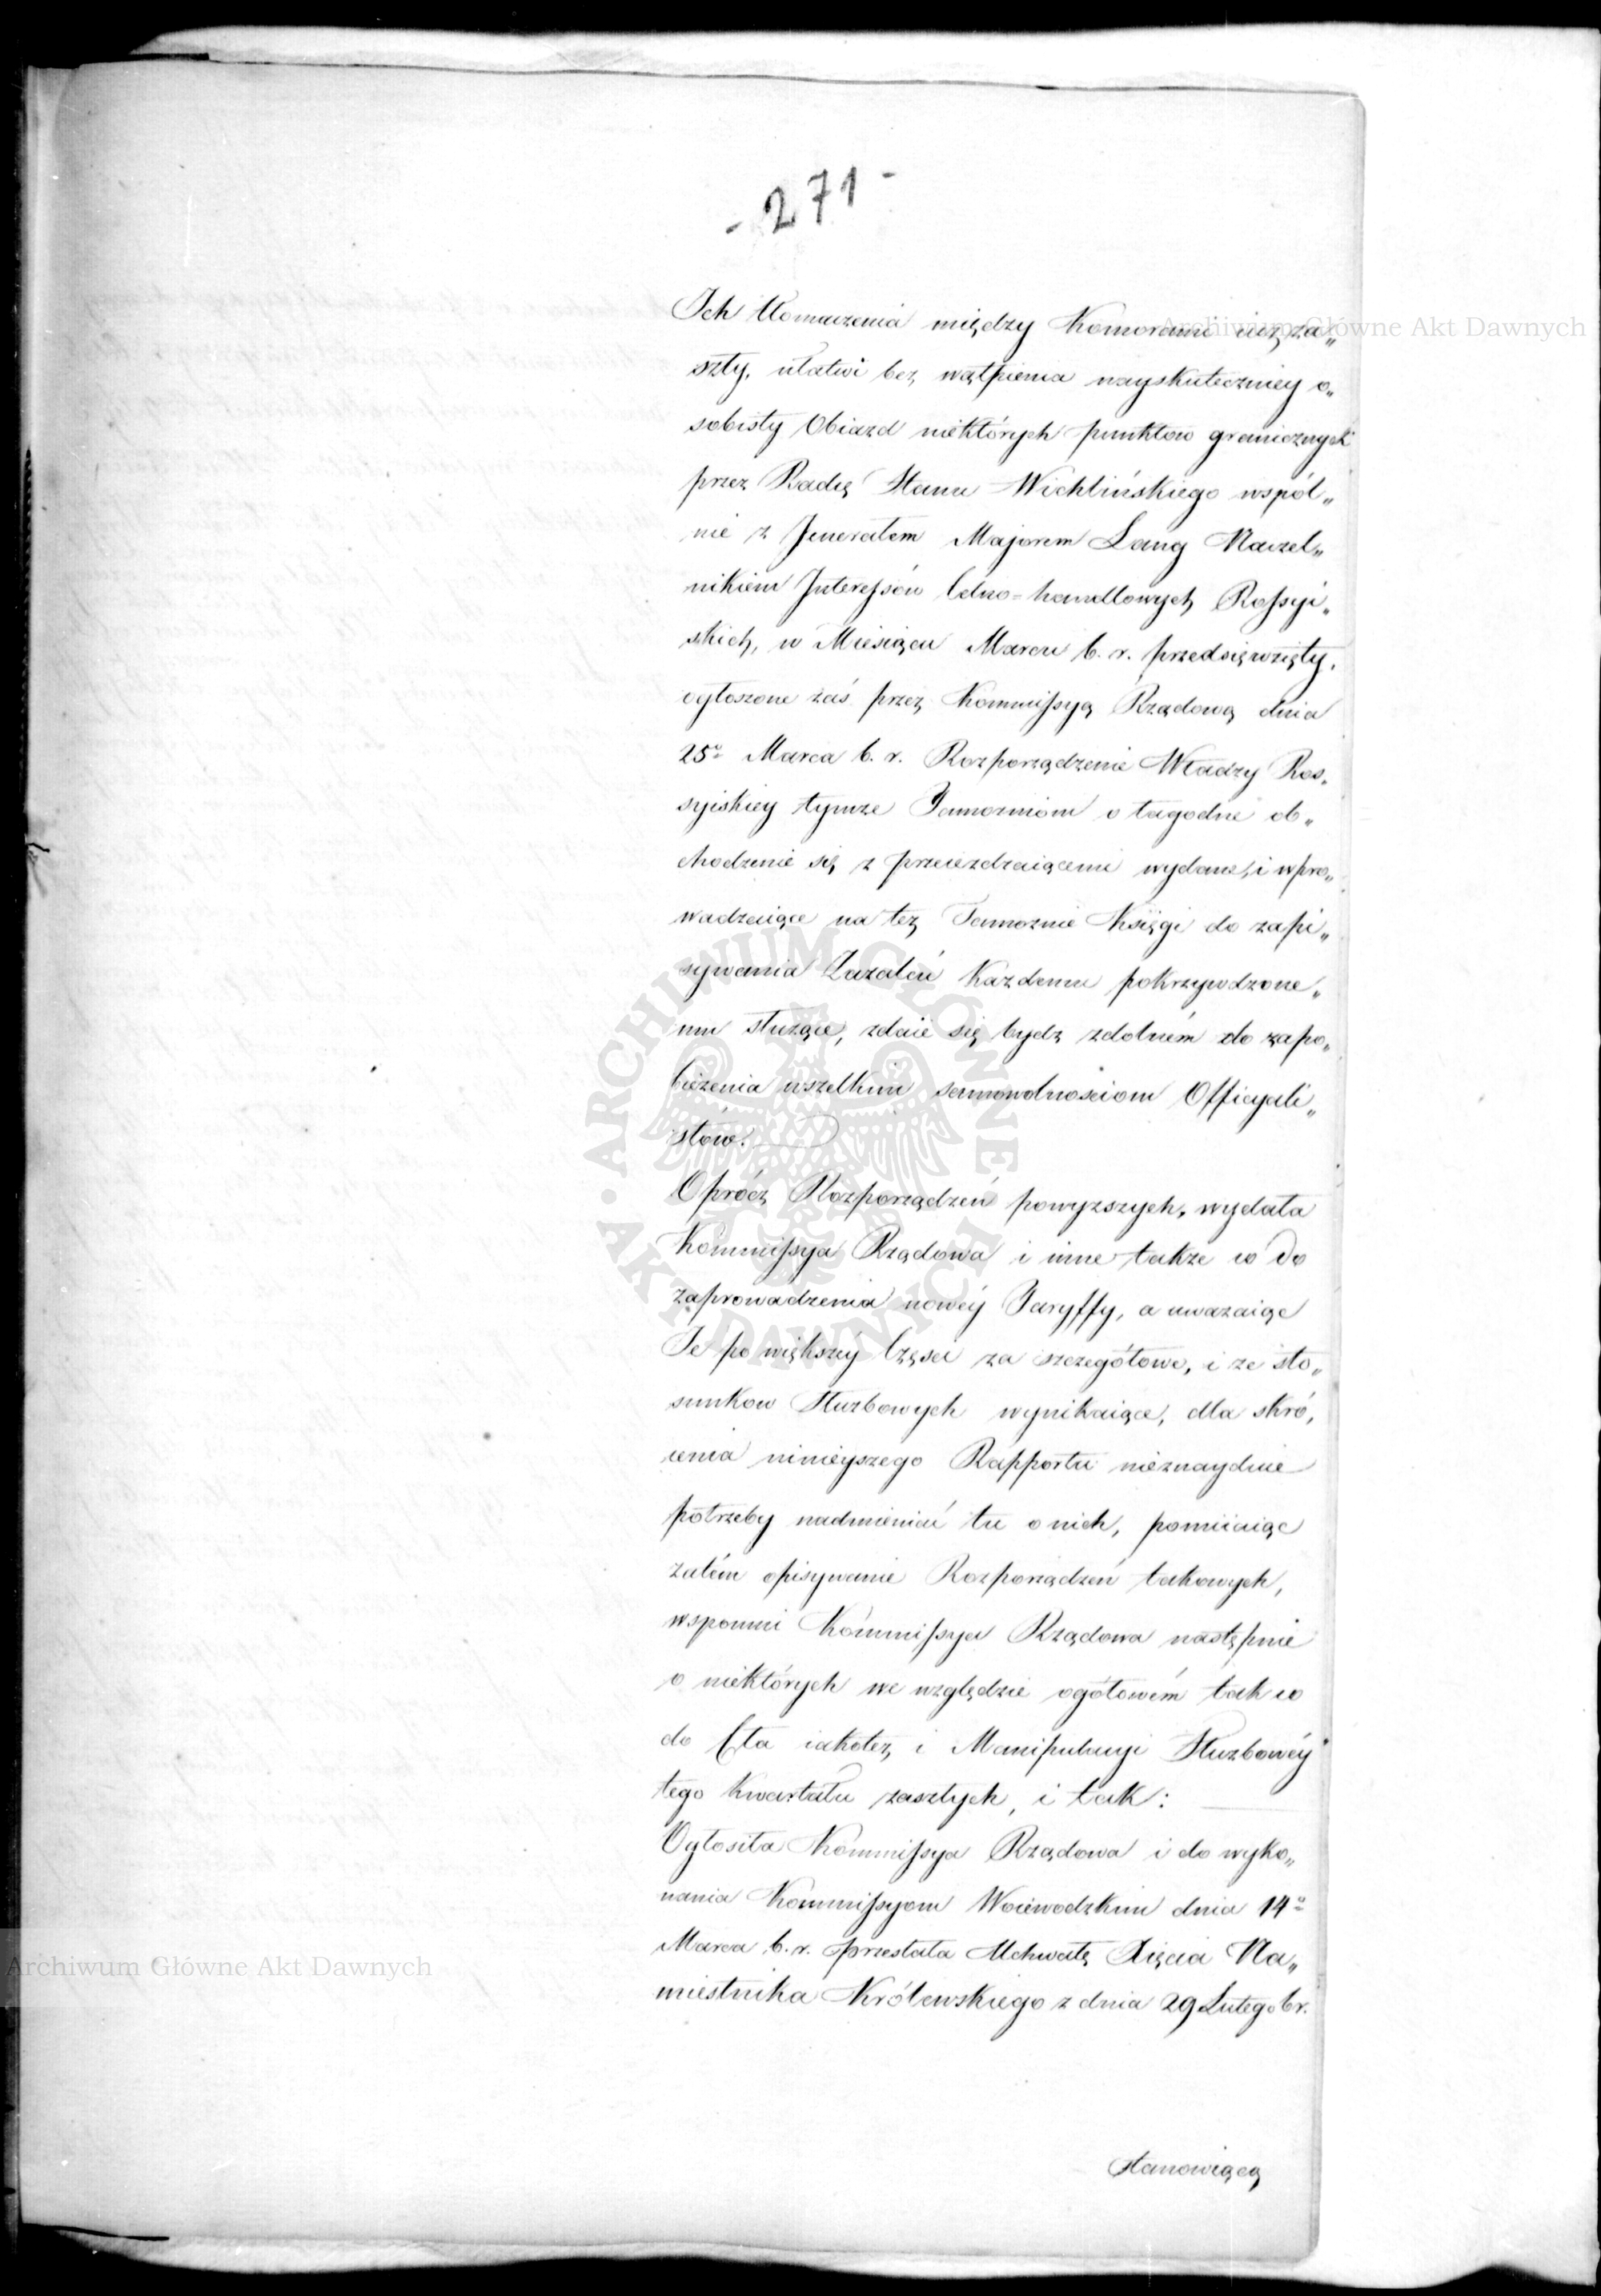 - 271 -
Ich tłomaczenia między Komorami iuż za„
szły, ułatwi bez wątpienia nayskuteczniey o„
sobisty Obiazd niektórych punktow granicznych
przez Radcę Stanu Wichlińskiego wspól„
nie z Jenerałem Majorem Lang Naczel„
nikiem Interessów Celno=handlowych Rossyi„
skich, w Miesiącu Marcu b. r. przedsięwzięty.
ogłoszone zaś przez Kommissyą Rządową dnia
25º Marca b. r. Rozporządzenie Władzy Ros„
syiskiey tymże Tamożniom o łagodne ob„
chodzenie się z przeieżdzaiącemi wydane, i wpro„
wadzaiące na też Tamożnie Księgi do zapi„
sywania Zażaleń każdemu pokrzywdzone„
mu służące, zdaie się bydz zdolném do zapo„
bieżenia wszelkim samowolnościom Officyali„
stów.
Oprócz Rozporządzeń powyższych, wydała
Kommissya Rządowa i inne także co do
zaprowadzenia nowéy Taryffy, a uważaiąc
Je po większéy Części za szczegółowe, i ze sto„
sunkow Służbowych wynikaiące, dla skró„
cenia ninieyszego Rapportu nieznayduie
potrzeby nadmieniać tu o nich, pomiiaiąc
zatém opisywanie Rozporządzeń takowych,
wspomni Kommissya Rządowa następnie
o niektórych we względzie ogółowém tak co
do Cła iakoteż i Manipulacyi Służbowéy
tego kwartału zaszłych, i tak:
Ogłosiła Kommissya Rządowa i do wyko„
nania Kommissyom Woiewodzkim dnia 14º
Marca b. r. przesłała Uchwałę Xięcia Na„
miestnika Królewskiego z dnia 29 Lutego br.
stanowiącą
Archiwum Główne Akt Dawnych
Archiwum Główne Akt Dawnych
ARCHIWUM GŁÓWNE AKT DAWNYCH